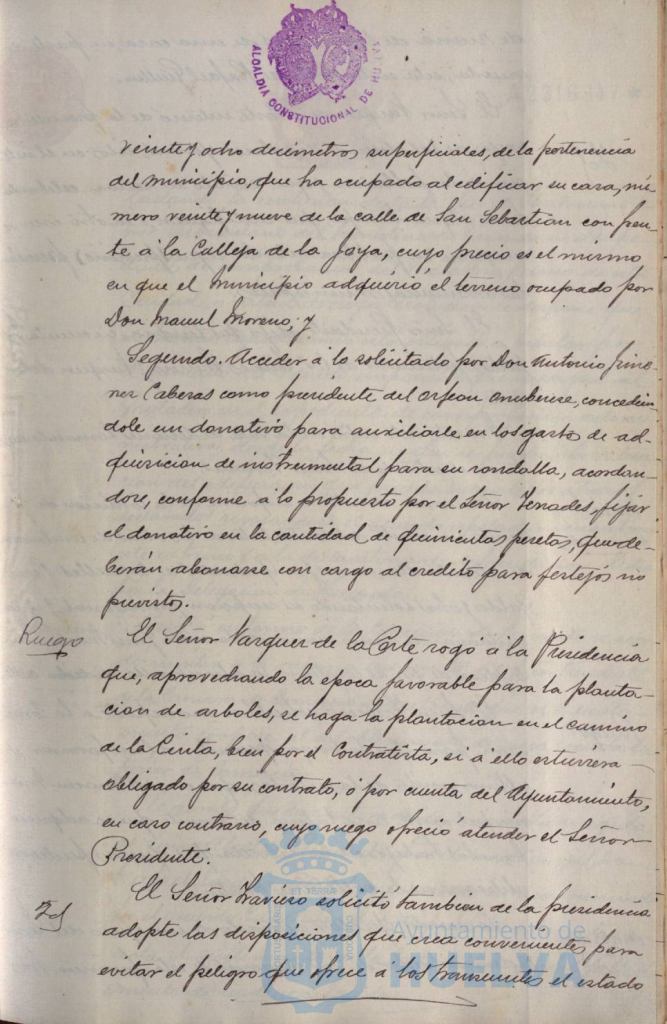 ALCALDIA CONSTITUCIONAL DE HUELVA
veinte y ocho decimetros superficiales, de la pertenencia
del municipio, que ha ocupado al edificar su casa, nú-
mero veinte y nueve de la calle de San Sebastian con fren-
te á la Calleja de la Joya, cuyo precio es el mismo
en que el Municipio adquirió el terreno ocupado por
Don Manuel Moreno; y
Segundo. Acceder á lo solicitado por Don Antonio Jime-
nez Caberas como presidente del Orfeon Onubense, concedien-
dole un donativo para auxiliarle en los gastos de ad-
quisicion de instrumental para su rondalla, acordan-
dose, conforme á lo propuesto por el Señor Tenades, fijar
el donativo en la cantidad de quinientas pesetas, que de-
berán abonarse con cargo al credito para festejos no
previstos.
Ruego
El Señor Vazquez de la Corte rogó á la Presidencia
que, aprovechando la epoca favorable para la planta-
cion de arboles, se haga la plantacion en el camino
de la Cinta, bien por el Contratista, si á ello estuviera
obligado por su contrato, ó por cuenta del Ayuntamiento,
en caso contrario, cuyo ruego ofreció atender el Señor
Presidente.
Id
El Señor Travieso solicitó tambien de la presidencia
adopte las disposiciones que crea convenientes para
evitar el peligro que ofrece á los transeuntes el estado
Ayuntamiento de
HUELVA